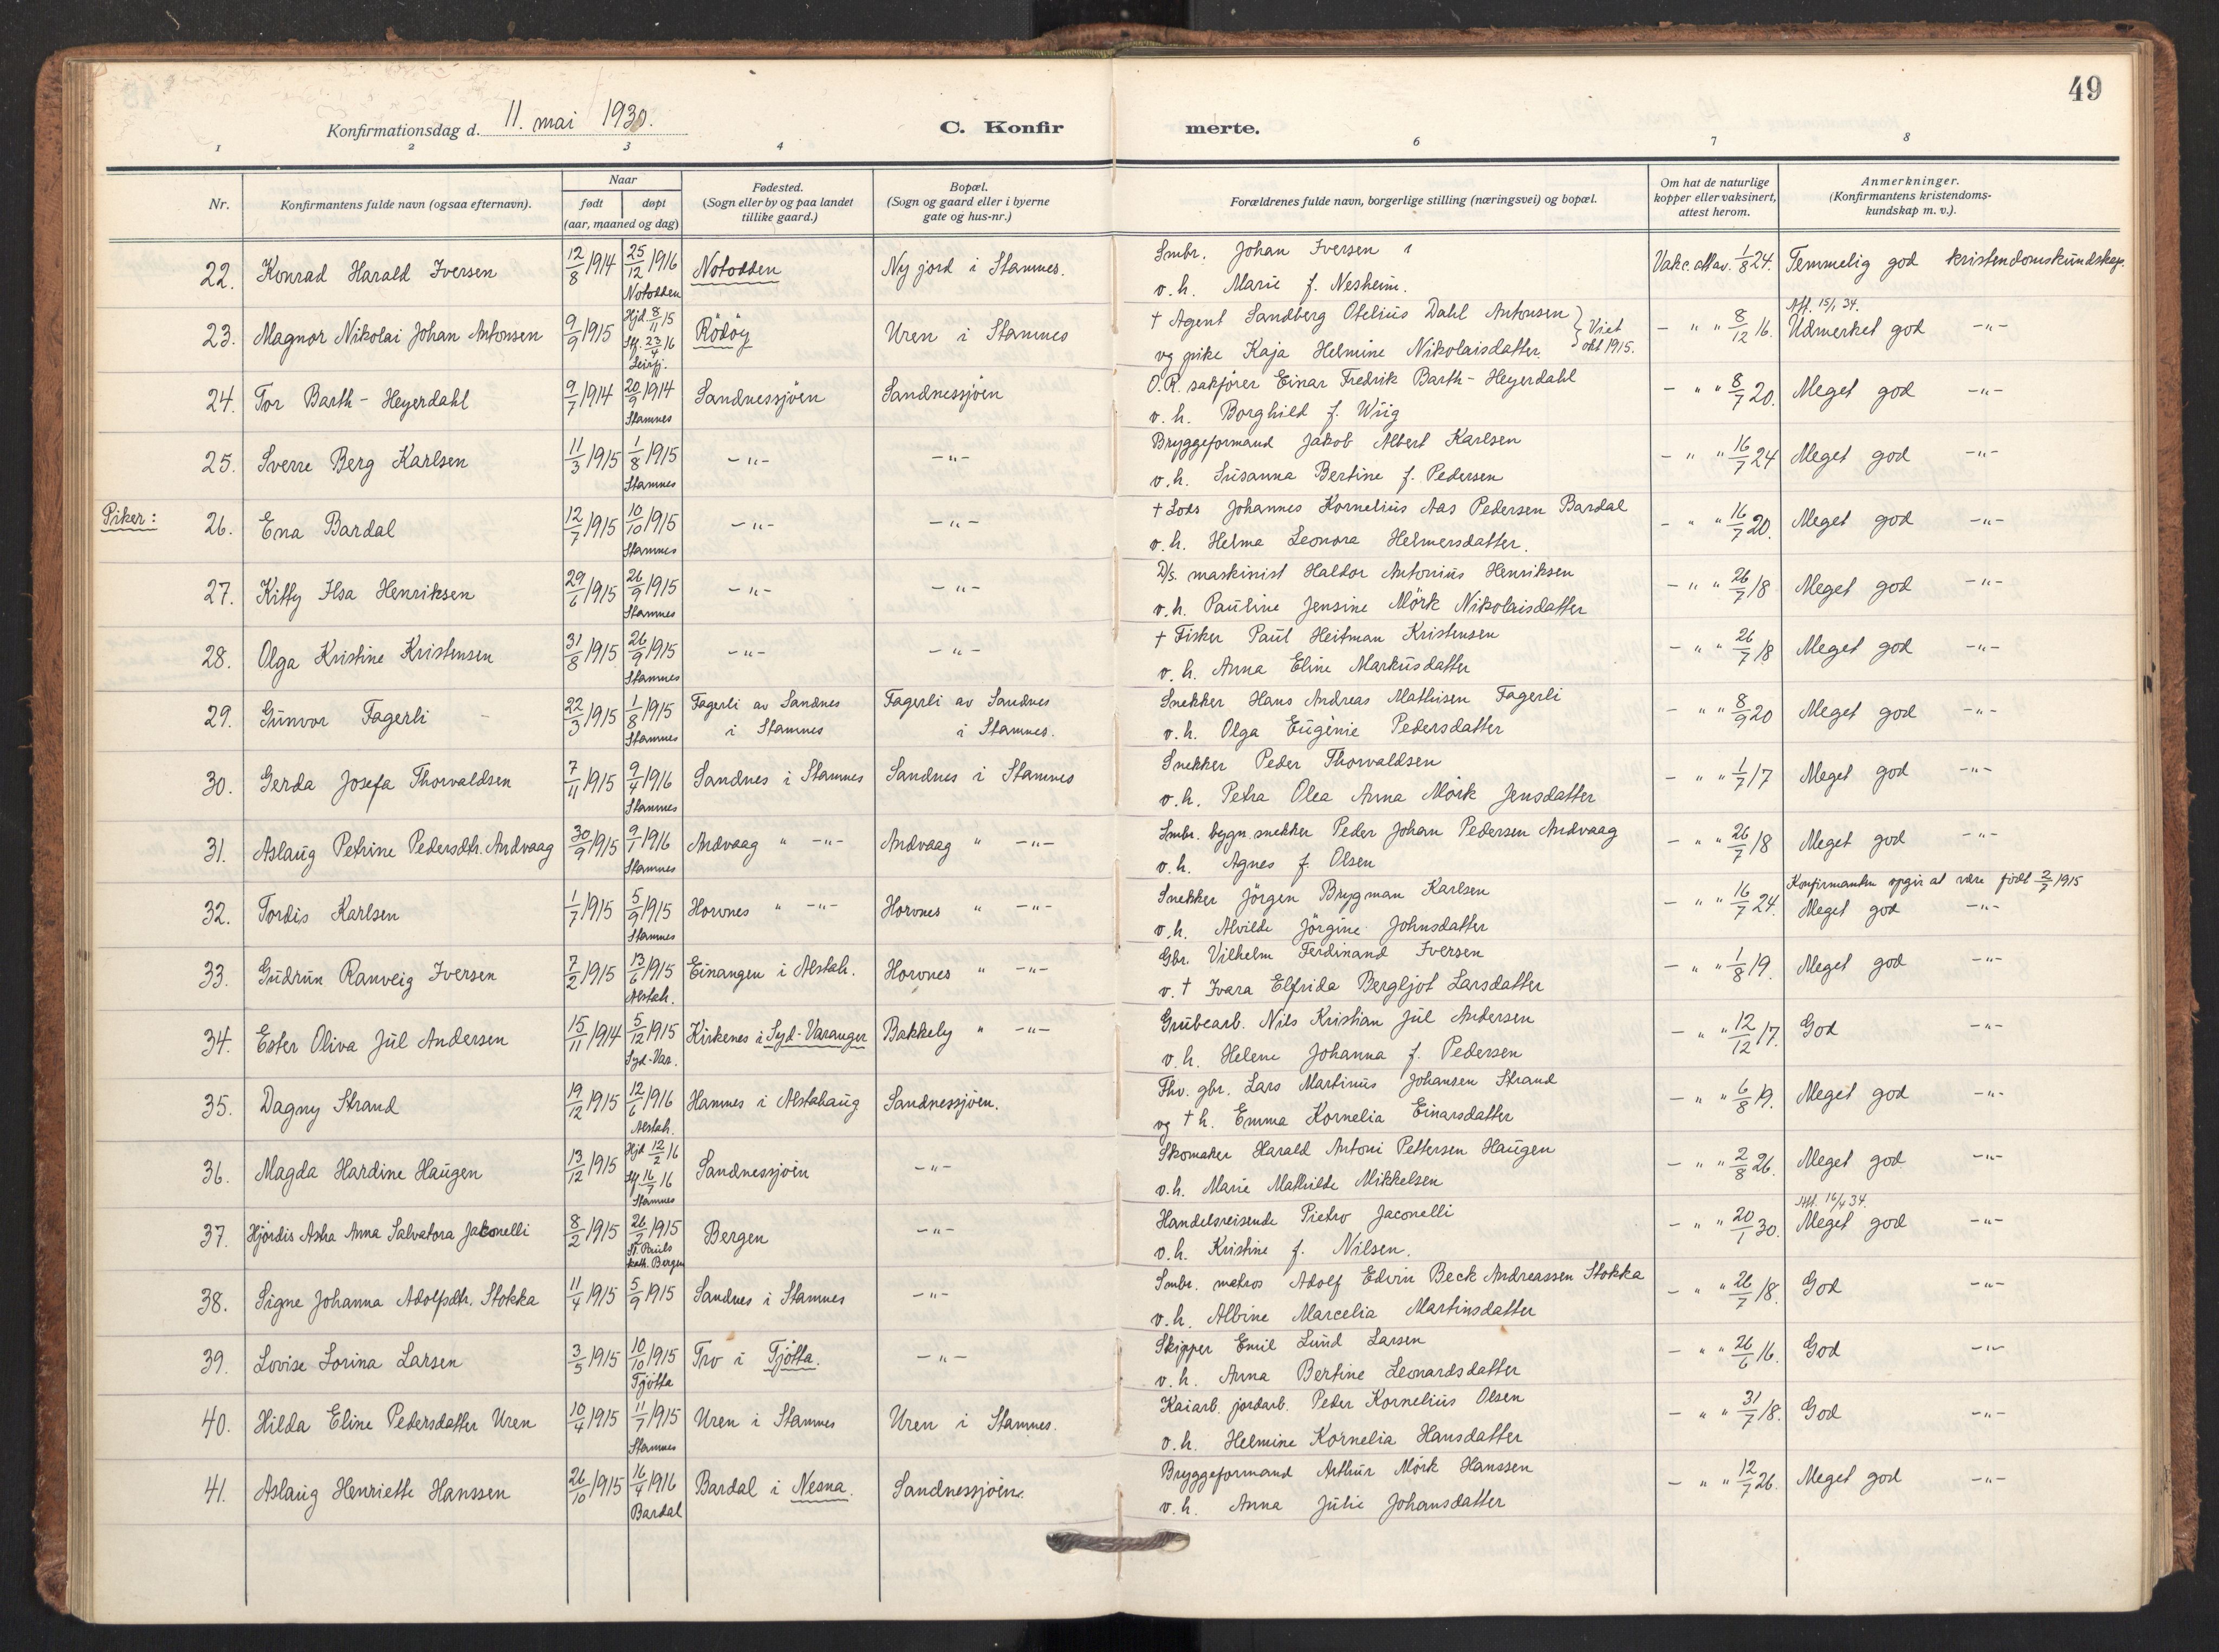 49
Konfirmationsdag d. 11. mai 1930.
C. Konfirmerte.
1 2 3 4 6 7 8
Nr.
Konfirmantens fulde navn (ogsaa efternavn).
Naar
født døpt
(aar, maaned og dag)
Fødested.
(Sogn eller by og paa landet
tillike gaard.)
Bopæl.
(Sogn og gaard eller i byerne
gate og hus-nr.)
Forældrenes fulde navn, borgerlige stilling (næringsvei) og bopæl.
Om hat de naturlige
kopper eller vaksinert,
attest herom.
Anmerkninger.
(Konfirmantens kristendoms-
kundskap m. v.).
22. Konrad Harald Iversen 12/8 1914 25/12 1916 Notodden Notodden Ny jord i Stamnes. Smbr. Johan Iversen
v. h. Marie f. Nesheim. Vakc. att av. 1/8 24. Temmelig god kristendomskundskap.
23. Magnor Nikolai Johan Antonsen 9/9 1915 Hjd. 8/11 15 Stf. 23/4 16 Leirfj. Rödöy Uren i Stamnes † Agent Sandberg Otelius Dahl Antonsen
og pike Kaja Helmine Nikolaisdatter. } Viet okt 1915. - " " 8/12 16. Att. 15/1 34.
Udmerket god -"-
24. Tor Barth-Heyerdahl 9/7 1914 20/9 1914 Stamnes Sandnessjöen Sandnessjöen O.R. sakförer Einar Fredrik Barth-Heyerdahl
v. h. Borghild f. Wiig - " " 8/7 20. Meget god -"-
25. Sverre Berg Karlsen 11/3 1915 1/8 1915 Stamnes -"- -"- Bryggeformand Jakob Albert Karlsen
v. h. Susanna Bertine f. Pedersen - " " 16/7 24 Meget god -"-
Piker:
26. Ena Bardal 12/7 1915 10/10 1915 Stamnes -"- -"- † Lods Johannes Kornelius Aas Pedersen Bardal
v. h. Helma Leonora Helmersdatter. - " " 16/7 20. Meget god -"-
27. Kitty Ilsa Henriksen 29/6 1915 26/9 1915 Stamnes -"- -"- D/s. maskinist Haldor Antonius Henriksen
v. h. Pauline Jensine Mörk Nikolaisdatter - " " 26/7 18 Meget god -"-
28. Olga Kristine Kristensen 31/8 1915 26/9 1915 Stamnes -"- -"- † Fisker Paul Heitman Kristensen
v. h. Anna Eline Markusdatter - " " 26/7 18 Meget god -"-
29. Gunvor Fagerli 22/3 1915 1/8 1915 Stamnes Fagerli av Sandnes
i Stamnes Fagerli av Sandnes
i Stamnes. Snekker Hans Andreas Mathisen Fagerli
v. h. Olga Eugénie Pedersdatter - " " 8/9 20 Meget god -"-
30. Gerda Josefa Thorvaldsen 7/11 1915 9/4 1916 Stamnes Sandnes i Stamnes Sandnes i Stamnes Snekker Peder Thorvaldsen
v. h. Petra Olea Anna Mörk Jensdatter - " " 1/7 17 Meget god -"-
31. Aslaug Petrine Pedersdtr. Andvaag 30/9 1915 9/1 1916 Stamnes Andvaag " -"- Andvaag " -"- Smbr. bygn. snekker Peder Johan Pedersen Andvaag
v. h. Agnes f. Olsen - " " 26/7 18 Meget god -"-
32. Tordis Karlsen 1/7 1915 5/9 1915 Stamnes Horvnes " -"- Horvnes " -"- Snekker Jörgen Brygman Karlsen
v. h. Alvilde Jörgine Johnsdatter - " " 16/7 24. Konfirmanten opgir at være födt 2/7 1915
Meget god -"-
33. Gudrun Ranveig Iversen 7/2 1915 13/6 1915 Alstah. Einangen i Alstah. Horvnes " -"- Gbr. Vilhelm Ferdinand Iversen
v. † Ivara Elfrida Bergljot Larsdatter - " " 1/8 19. Meget god -"-
34. Ester Oliva Jul Andersen 15/11 1914 5/12 1915 Syd-Var. Kirkenes i Syd-Varanger Bakkeby " -"- Grubearb. Nils Kristian Jul Andersen
v. h. Helene Johanna f. Pedersen - " " 12/12 17. God -"-
35. Dagny Strand 19/12 1915 12/6 1916 Alstah. Hamnes i Alstahaug Sandnessjöen. Fhv. gbr. Lars Martinus Johansen Strand
og † h. Emma Kornelia Einarsdatter - " " 6/8 19. Meget god -"-
36. Magda Hardine Haugen 13/12 1915 Hjd 12/2 16 Stf. 16/7 16 Stamnes Sandnessjöen -"- Skomaker Harald Antoni Pettersen Haugen
v. h. Marie Mathilde Mikkelsen - " " 2/8 26. Meget god -"-
37. Hjördis Astra Anna Salvatora Jaconelli 8/2 1915 26/2 1915 St. Pauls kath. Bergen Bergen -"- Handelsreisende Pietro Jaconelli
v. h. Kristine f. Nilsen. - " " 20/1 30. Att. 16/4 34.
Meget god -"-
38. Signe Johanna Adolfsdtr. Stokka 11/4 1915 5/9 1915 Sandnes i Stamnes -"- Smbr. matros Adolf Edvin Beck Andreassen Stokka
v. h. Albine Marcelia Martinsdatter - " 26/7 18. God -"-
39. Lovise Lorina Larsen 3/5 1915 10/10 1915 Tjötta Tro i Tjötta. -"- Skipper Emil Lund Larsen
v. h. Anna Bertine Leonardsdatter - " " 26/6 16. God -"-
40. Hilda Eline Pedersdatter Uren 10/4 1915 11/7 1915 Stamnes Uren i Stamnes Uren i Stamnes. Kaiarb. jordarb. Peder Kornelius Olsen
v. h. Helmine Kornelia Hansdatter - " " 31/7 18. God -"-
41. Aslaug Henriette Hanssen 26/10 1915 16/4 1916 Bardal Bardal i Nesna. Sandnessjöen. Bryggeformand Arthur Mörk Hanssen
v. h. Anna Julie Johansdatter - " " 12/7 26. Meget god -"-